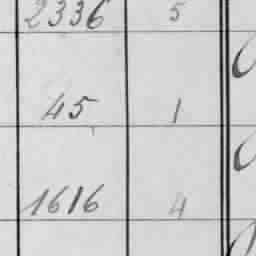 2336 5
45 1
1616 4